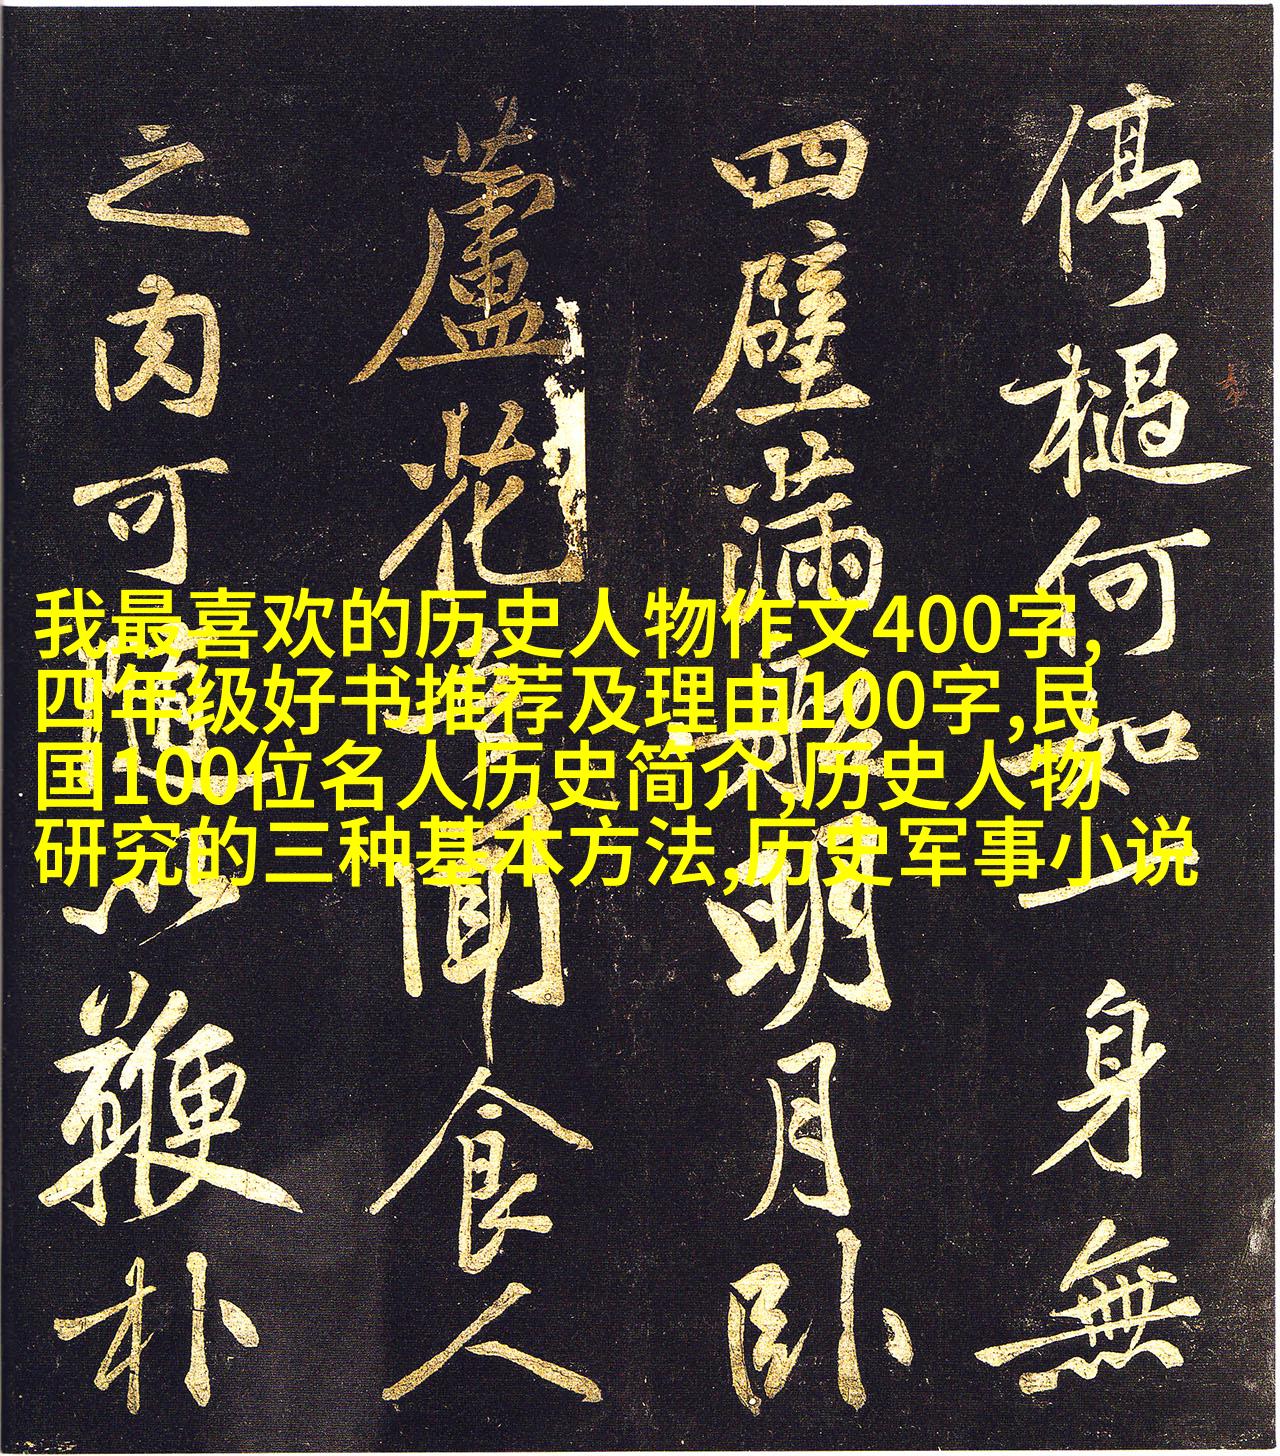 停檛何如一身無
四壁滿船明月臥
蘆花吾聞食人
之肉可隨以鞭朴
我最喜欢的历史人物作文400字,
四年级好书推荐及理由100字,民
国100位名人历史简介,历史人物
研究的三种基本方法,历史军事小说